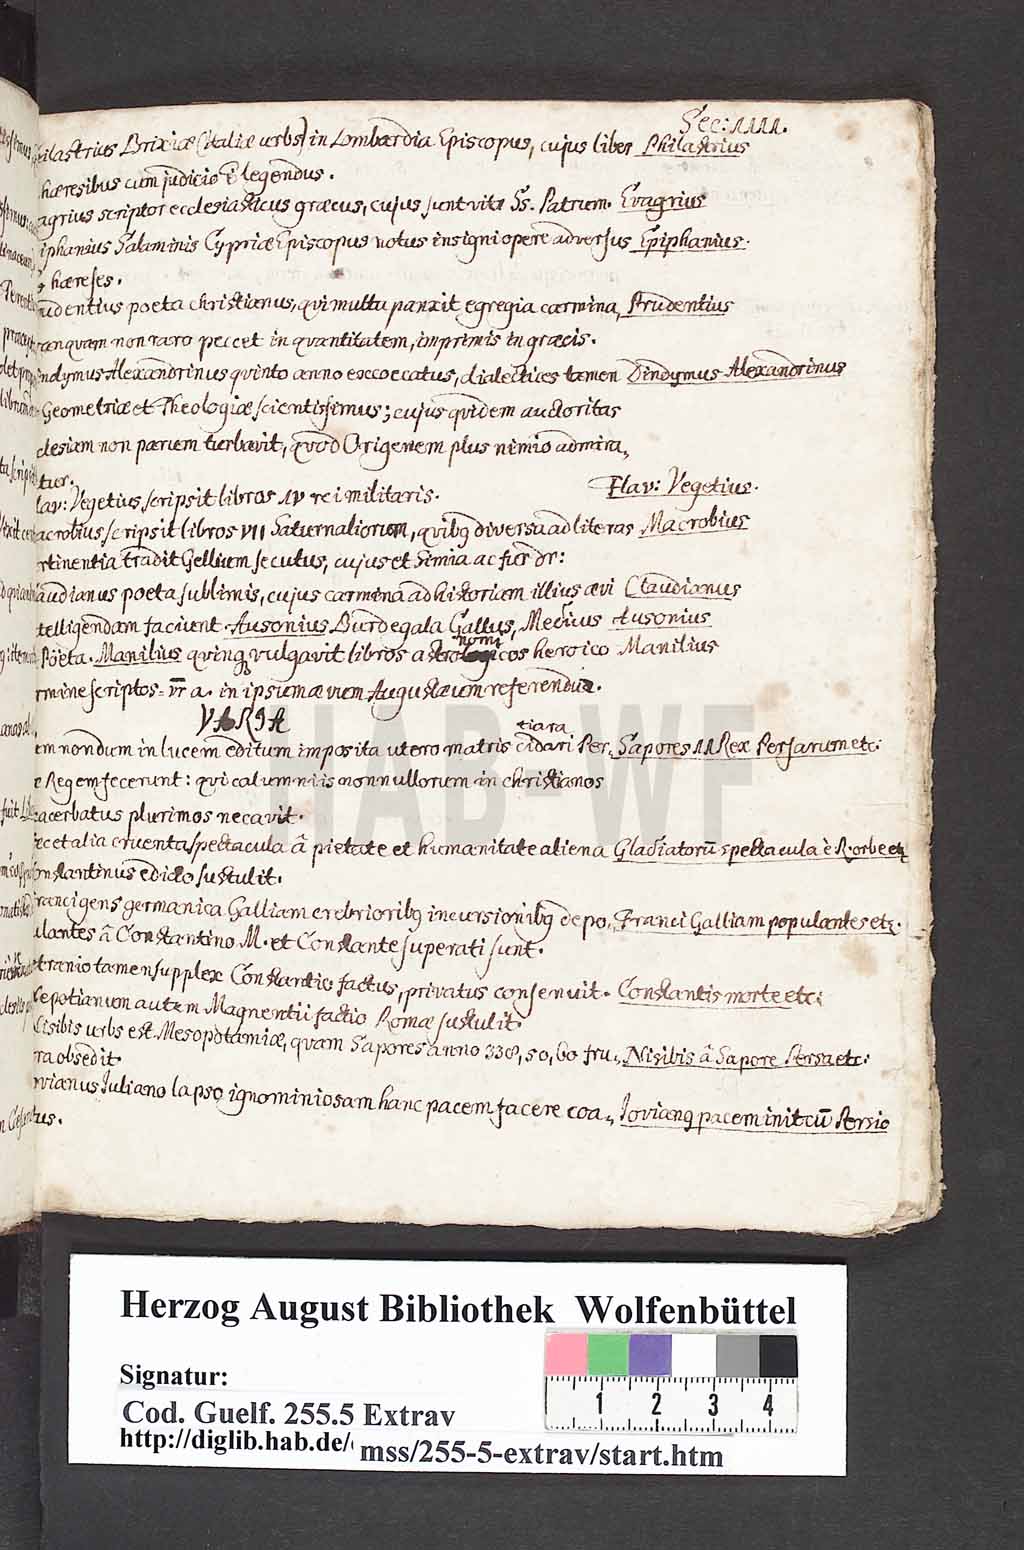 Sec: IIII.
ilastrius Brixiæ (Italiæ urbs) in Lombardia Episcopus, cujus liber Philastrius
hæresibus cum judicio ē legendus.
agrius scriptor ecclesiasticus græcus, cujus sunt vitæ Ss. Patrum. Evagrius
iphanius Salaminis Cypriæ Episcopus notus insigni opere adversus Epiphanius.
hæreses.
udentius poeta christianus, qui multa panxit egregia carmina, Prudentius
anquam non raro peccet in quantitatem, imprimis in græcis.
ndymus Alexandrinus quinto anno excoecatus, dialectices tamen Dindymus Alexandrinus
Geometriæ et Theologiæ scientissimus; cujus quidem auctoritas
clesiam non parum turbavit, quod Origenem plus nimio admira„
tur.
lav: Vegetius scripsit libros IV rei militaris. Flav: Vegetius.
acrobius scripsit libros VII Saturnaliorum, quibq diversa ad literas Macrobius
rtinentia tradit Gellium secutus, cujus et Simia ac fur dr:
audianus poeta sublimis, cujus carmina ad historiam illius ævi Claudianus
telligendam faciunt. Ausonius Burdegala Gallus, Medicus Ausonius
Poëta. Manilius quinq vulgavit libros astronomicos heroico Manilius
rmine scriptos = in ipsum ævum Augustæum referendus.
VARIA
em nondum in lucem editum imposita utero matris cidari Per„ Sapores II Rex Persarum etc:
tiara
e Regem fecerunt: qui calumniis nonnullorum in christianos
acerbatus plurimos necavit.
ec et alia cruenta spectacula â pietate et humanitate aliena Gladiatorū spectacula è R. orbe etc
onstantinus edicto sustulit.
ranci gens germanica Galliam crebrioribq incursionibq depo„ Franci Galliam populantes etc.
ulantes â Constantino M. et Constante superati sunt.
etranio tamen supplex Constantio factus, privatus consenuit. Constantis morte etc:
Nepotianum autem Magnentii factio Romæ sustulit.
Nisibis urbs est Mesopotamiæ, quam Sapores anno 338, 50, 60 fru„ Nisibis â Sapore Persa etc:
ra obsedit.
ovianus Juliano lapso ignominiosam hanc pacem facere coa„ Jovianq pacem init cū Persis
tus.
Herzog August Bibliothek Wolfenbüttel
Signatur:
Cod. Guelf. 255.5 Extrav
http://diglib.hab.de/ mss/255-5-extrav/start.htm
1 2 3 4
HAB-WF